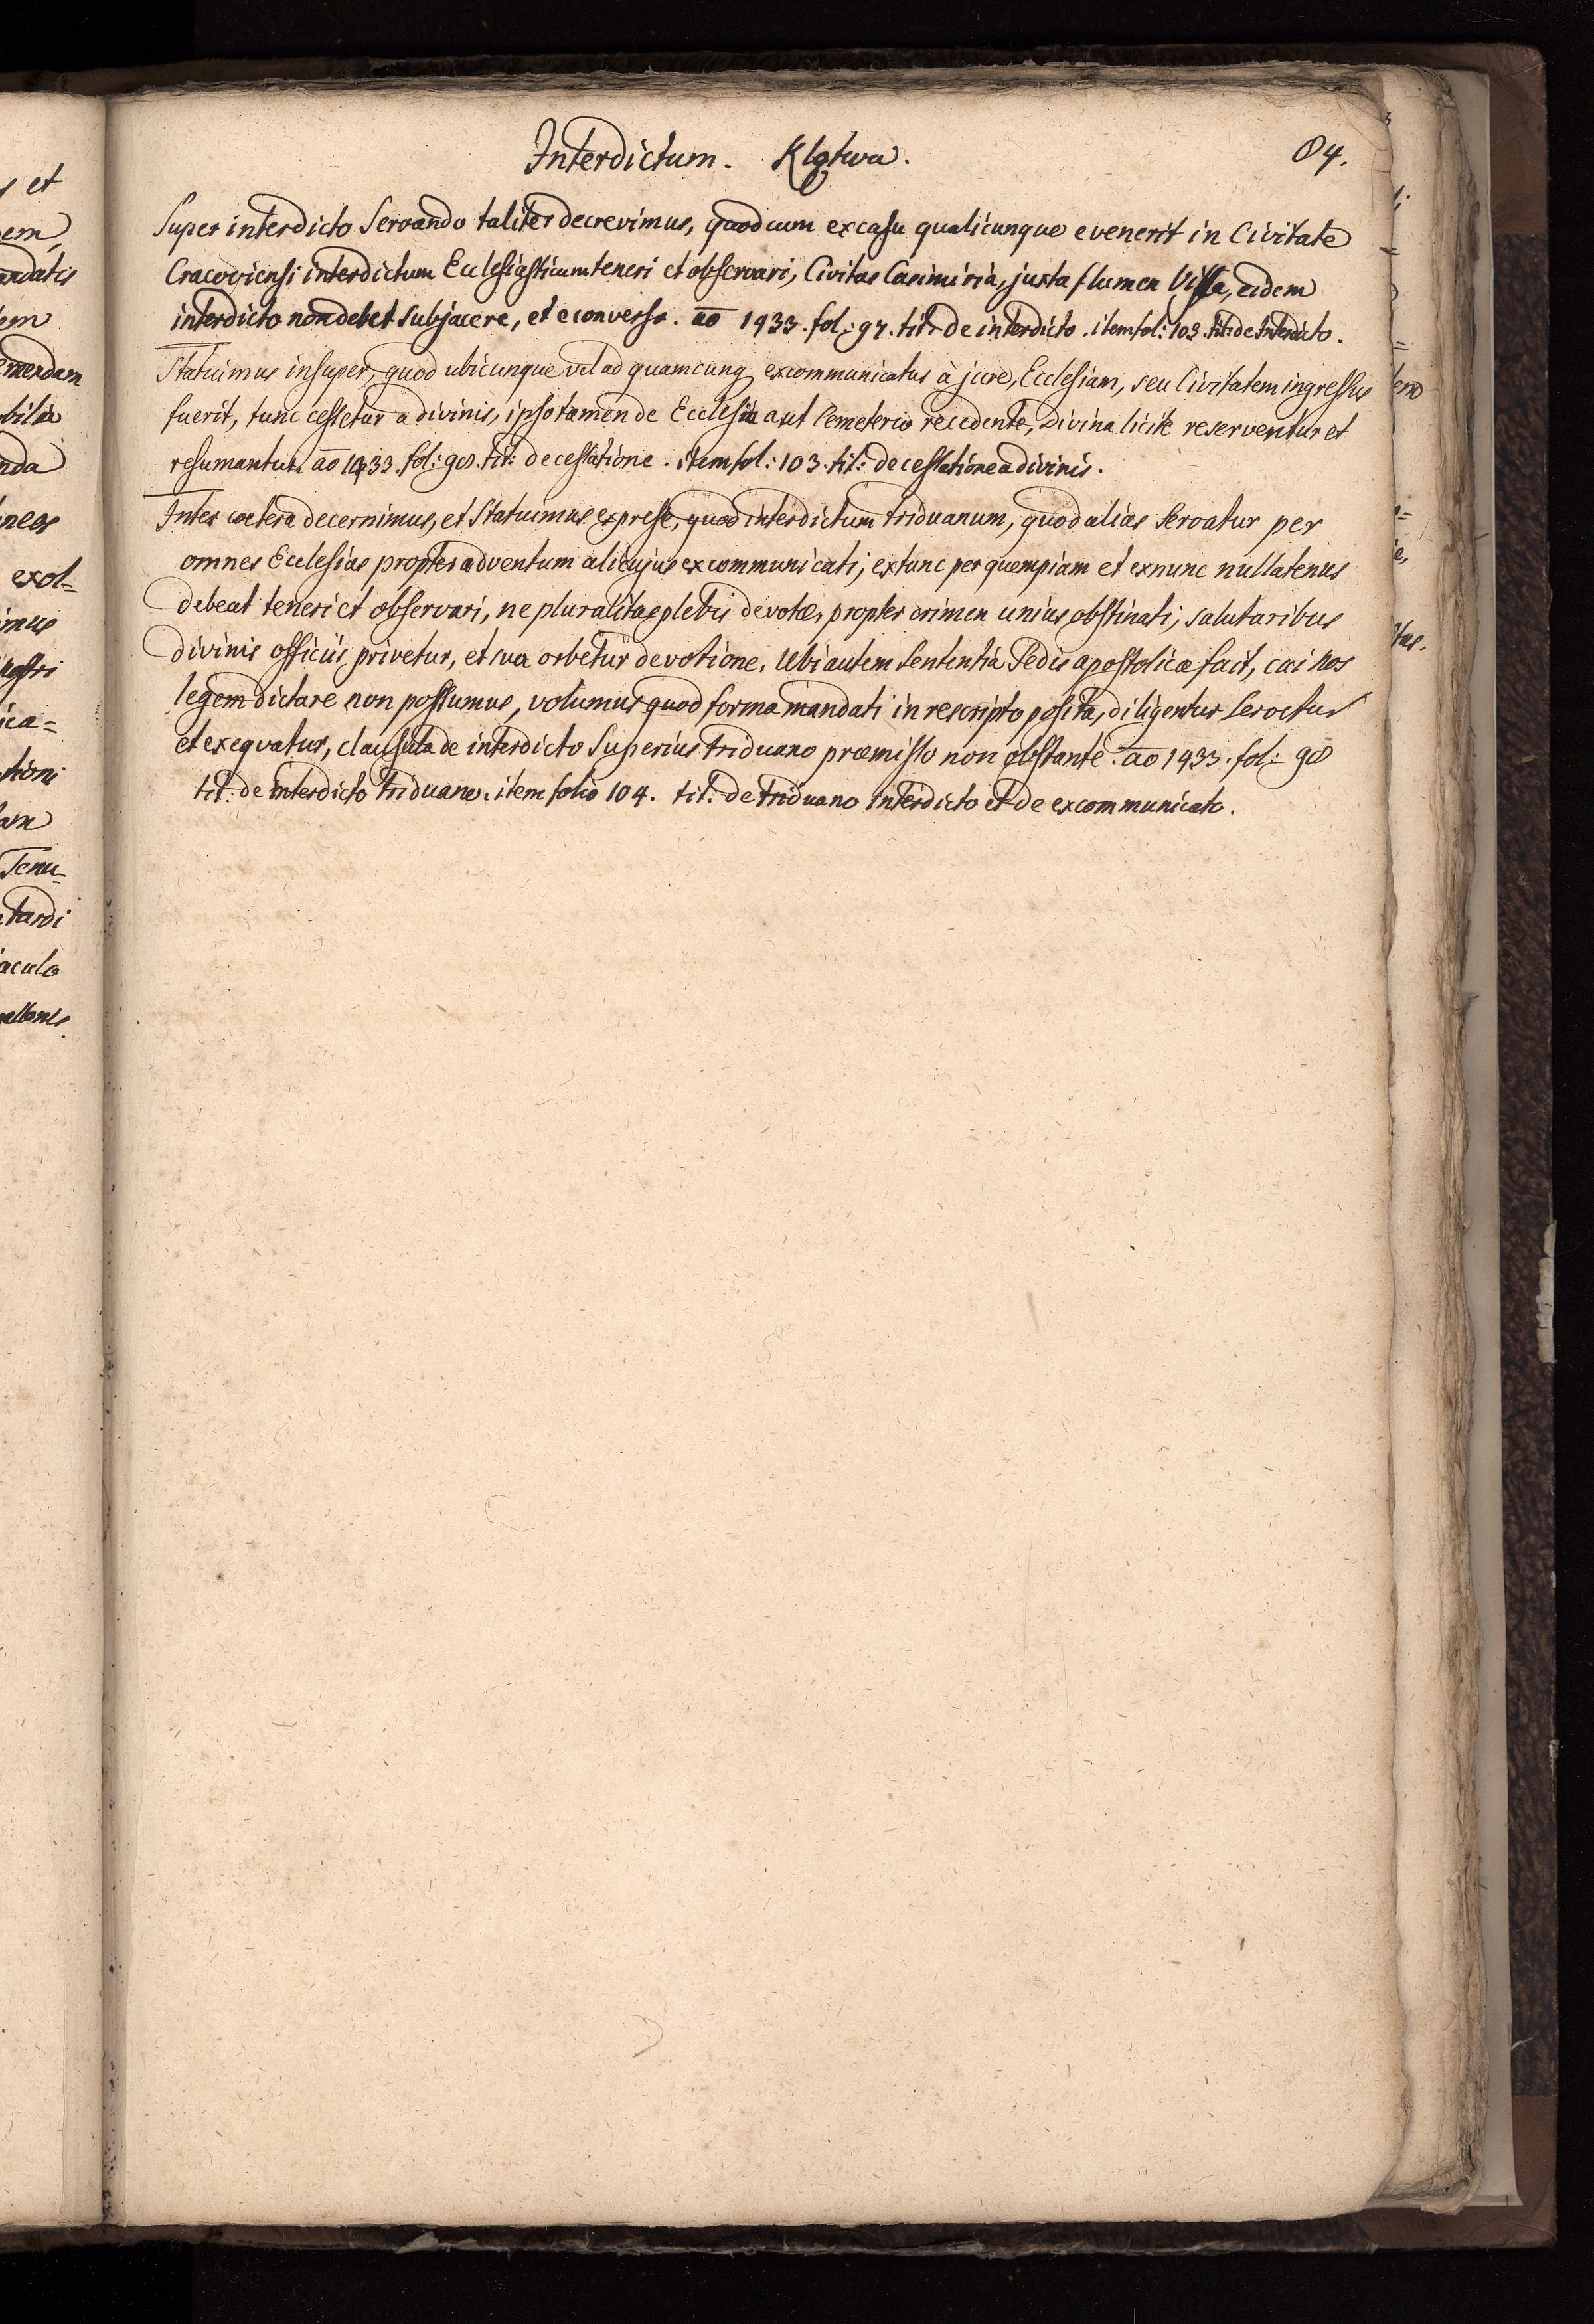 Interdictum. Klątwa. 84.
Super interdicto Servando taliter decrevimus, quod cum ex casu qualicunque evenerit in Civitate
Cracoviensi interdictum Ecclesiasticum teneri et observari, Civitas Casimiria, juxta flumen Vissa, eidem
interdicto non debet subjacere, et e converso. ao 1433. fol: 97. tit: de interdicto. item fol: 103. tit: de Interdicto.
Statuimus insuper, quod ubicunque vel ad quamcunq excommunicatus à jure, Ecclesiam, seu Civitatem ingressus
fuerit, tunc cessetur a divinis, ipso tamen de Ecclesia aut Cemeterio recedente, Divina licite reserventur et
resumantur. ao 1433. fol: 98. tit: de cessatione. item fol: 103. tit: de cessatione a divinis.
Inter coetera decernimus, et Statuimus exprese, quod interdictum triduanum, quod alias Servatur per
omnes Ecclesias propter adventum alicujus excommunicati, extunc per quempiam et exnunc nullatenus
debeat teneri et observari, ne pluralitas plebis devotæ, propter crimen unius obstinati, salutaribus
divinis officiis privetur, et sua orbetur devotione. Ubi autem Sententia Sedis apostolicæ fuit, cui nos
legem dictare non possumus, volumus quod forma mandati in rescripto posita, diligentur Servetur
et exequatur, clausula de interdicto Superius triduano præmisso non obstante. ao 1433. fol: 98
tit: de interdicto triduano. item folio 104. tit: de triduano interdicto et de excommunicato.
s et
em,
exol=
imus
ica=
Tenu=
tardi
aculo